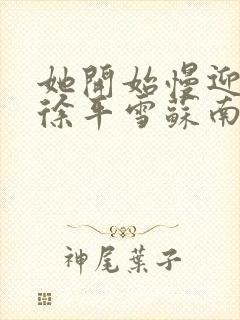 她開始慢迎
徐平雪蘇南
神尾葉子